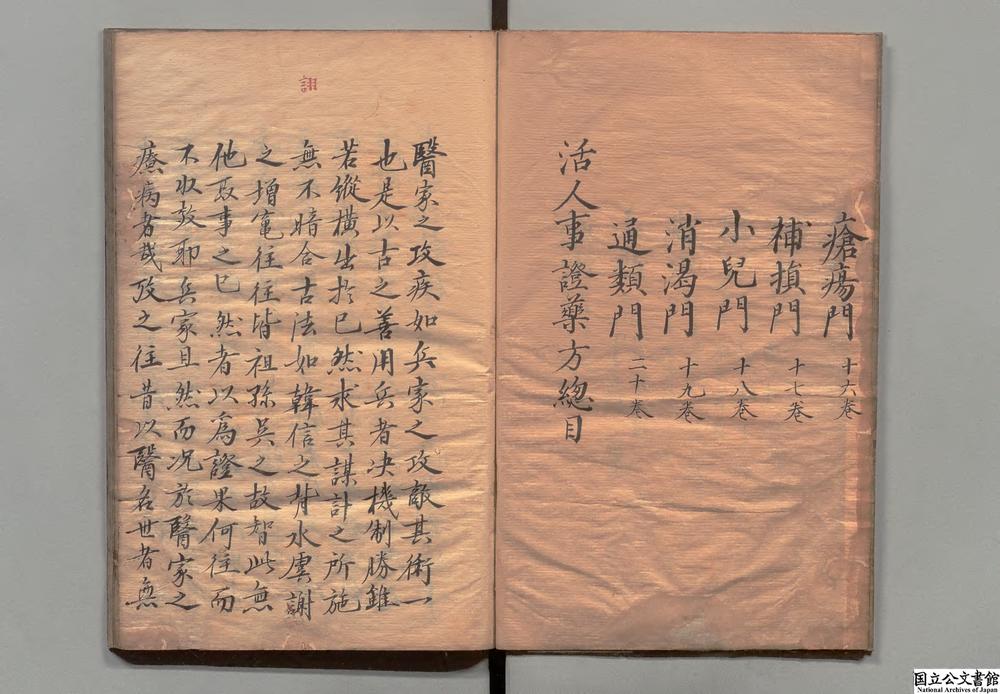 瘡瘍門 十六巻
補損門 十七巻
小兒門 十八巻
消渴門 十九巻
通類門 二十巻
活人事證藥方總目
醫家之攻疾如兵家之攻敵其術一
也是以古之善用兵者决機制勝雖
若縱横出於已然求其謀計之所施
無不暗合古法如韓信之背水虞詡
之增竃往往皆祖孫吳之故智此無
他取事之已然者以為證果何往而
不收效耶兵家且然而况於醫家之
療病者哉攷之往昔以醫名世者無
詡
国立公文書館
National Archives of Japan